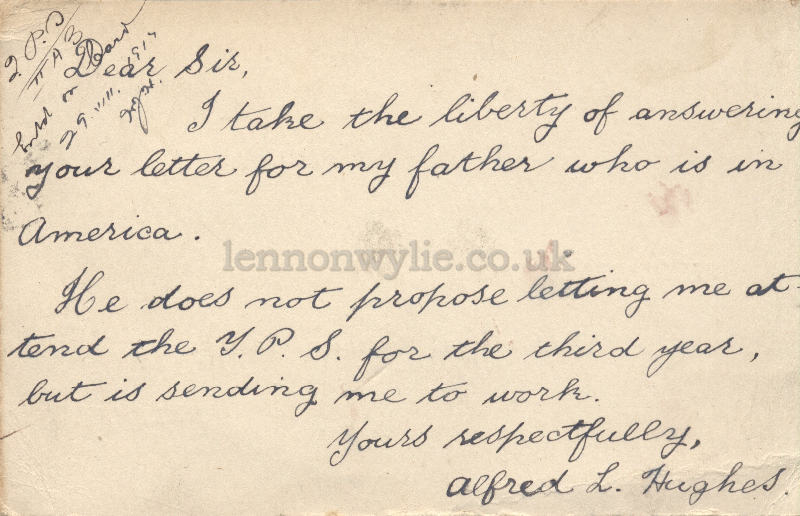 Dear Sir,
I take the liberty of answering
your letter for my father who is in
America.
lennonwylie.co.uk
He does not propose letting me at-
tend the Y. P. S. for the third year,
but is sending me to work.
Yours respectfully,
Alfred L. Hughes.
on Card
29. VIII. 1917